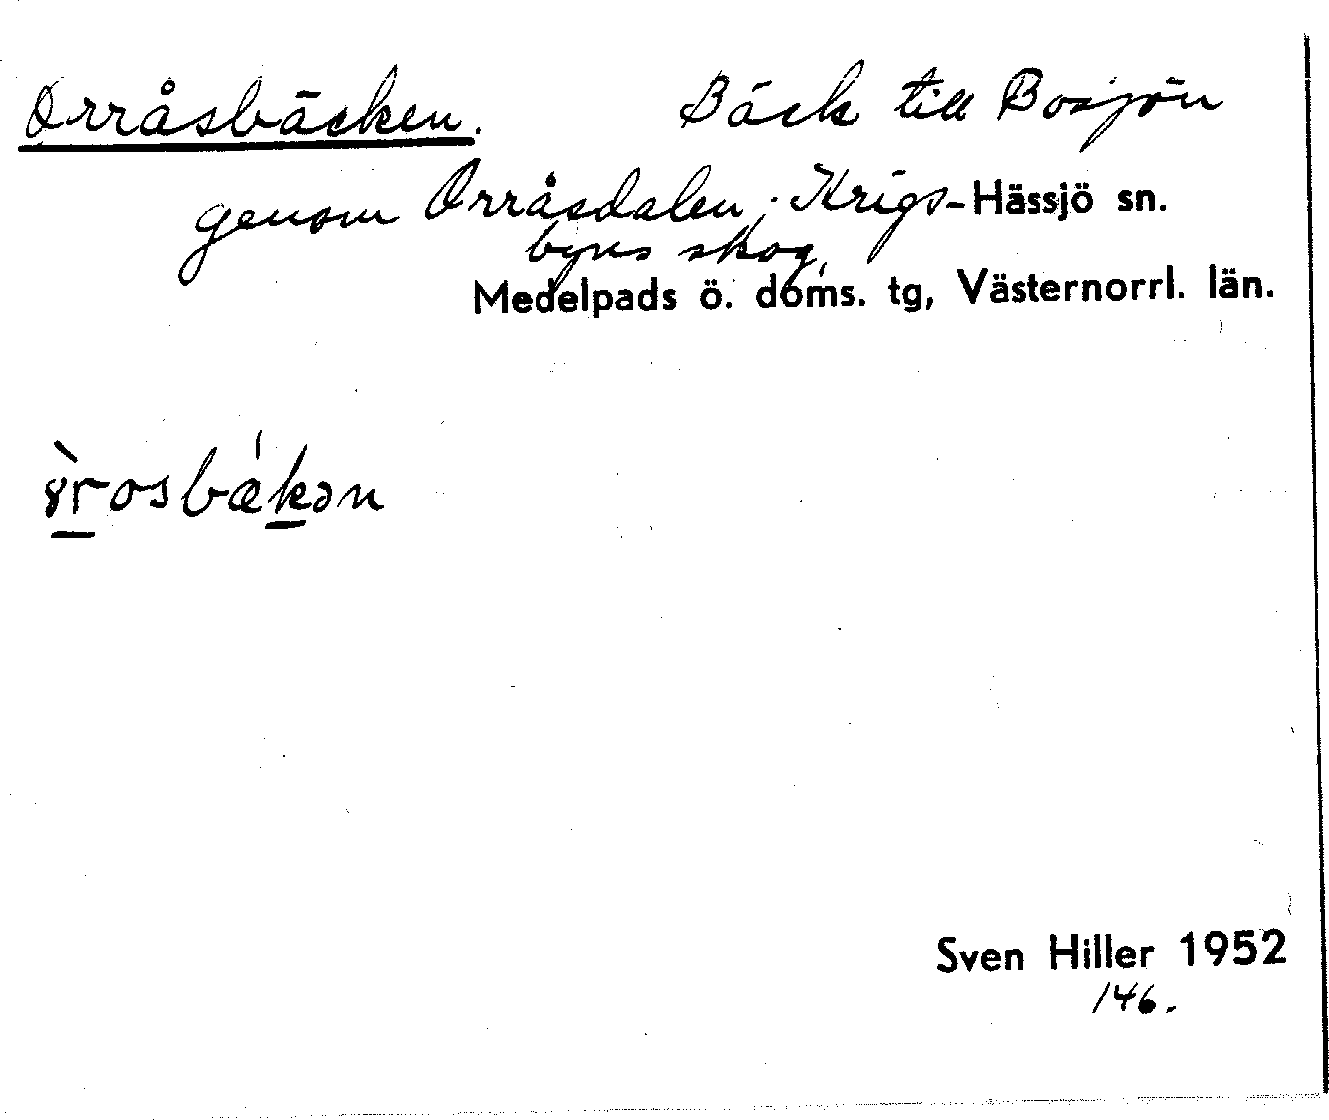 Orråsbäcken. Bäck till Bosjön
genom Orråsdalen, Krigs- Hässjö sn.
byns skog,
Medelpads ö. doms. tg, Västernorrl. län.
Sven Hiller 1952
146.